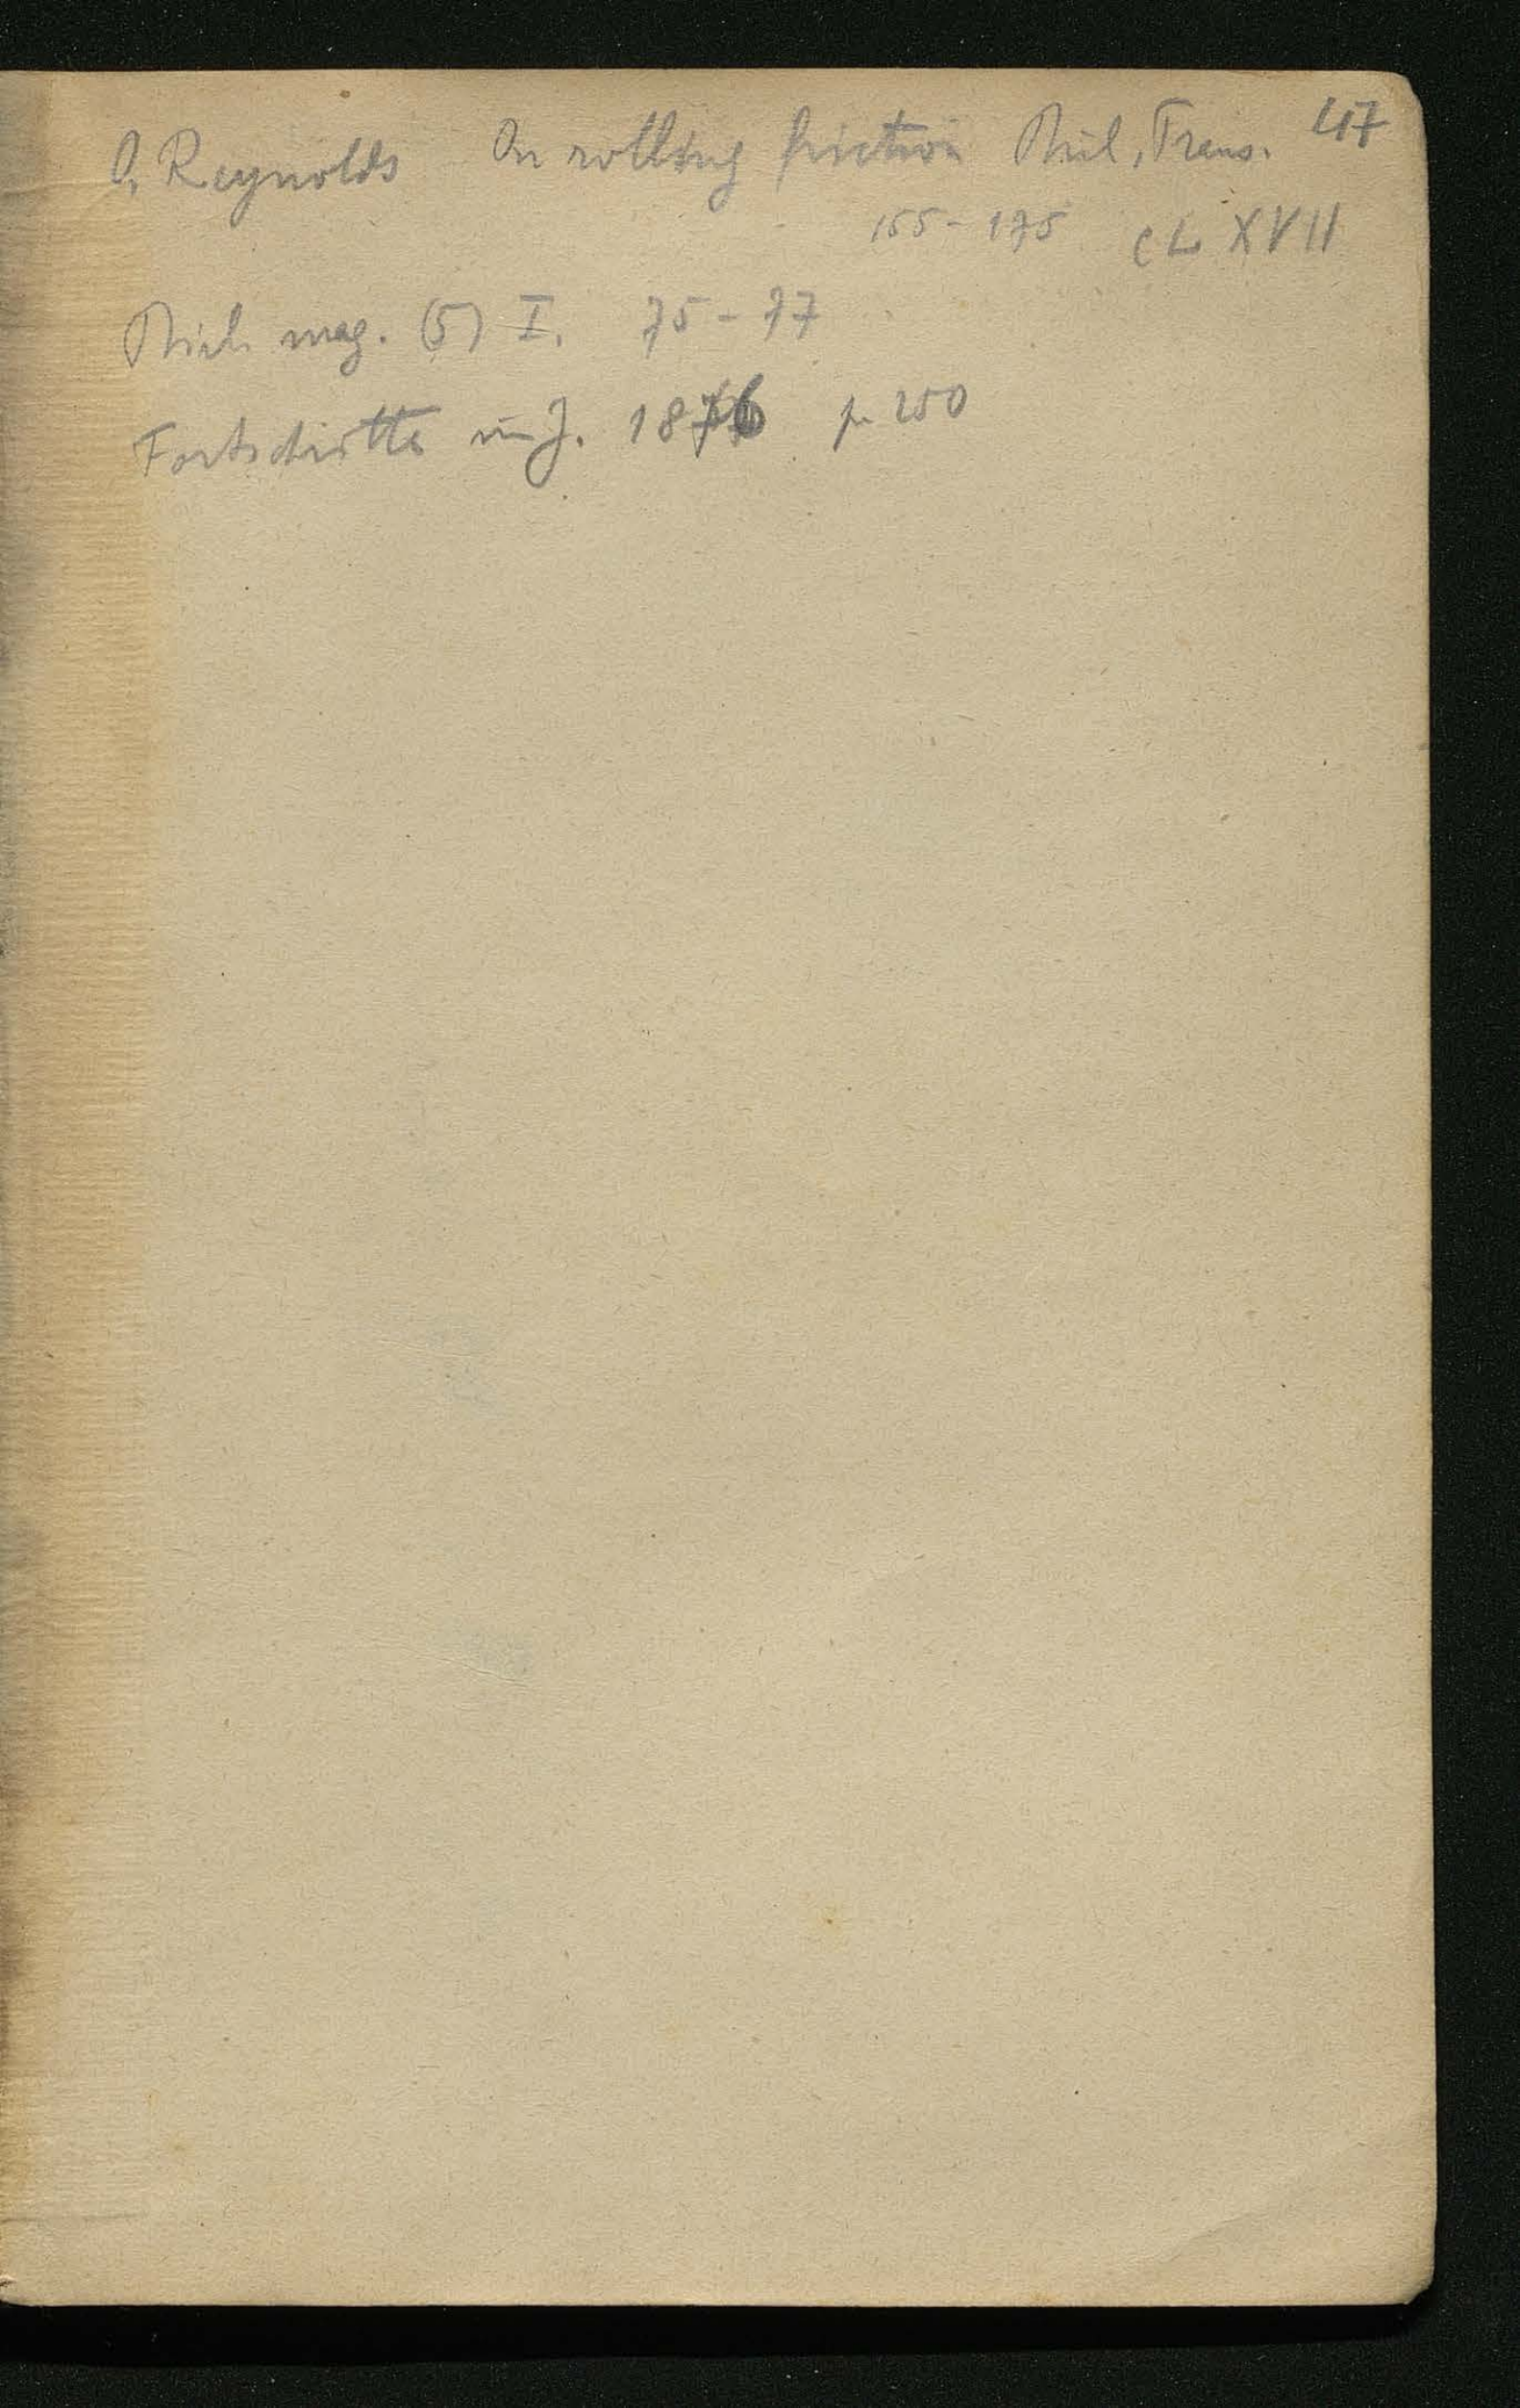 O, Reynolds On rolling friction Phil, Trans. 47
155 - 175 CLXVII
Phil mag. (5) I. 75 - 77
Fortschritte im J. 1876 p 250